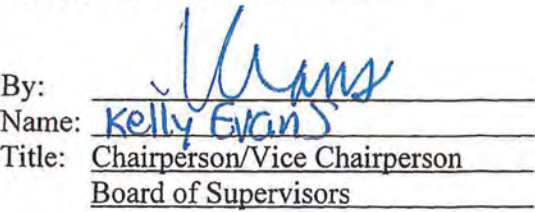 By:
Name: Kelly Evans
Title: Chairperson/Vice Chairperson
Board of Supervisors